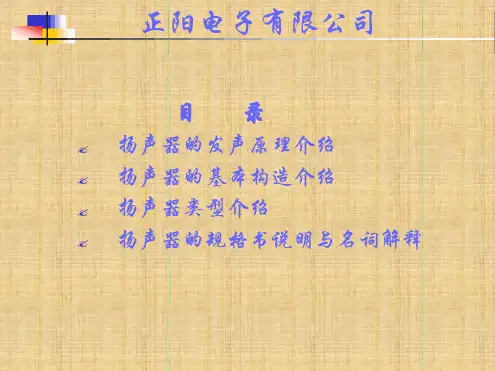 正阳电子有限公司
目 录
扬声器的发声原理介绍
扬声器的基本构造介绍
扬声器类型介绍
扬声器的规格书说明与名词解释